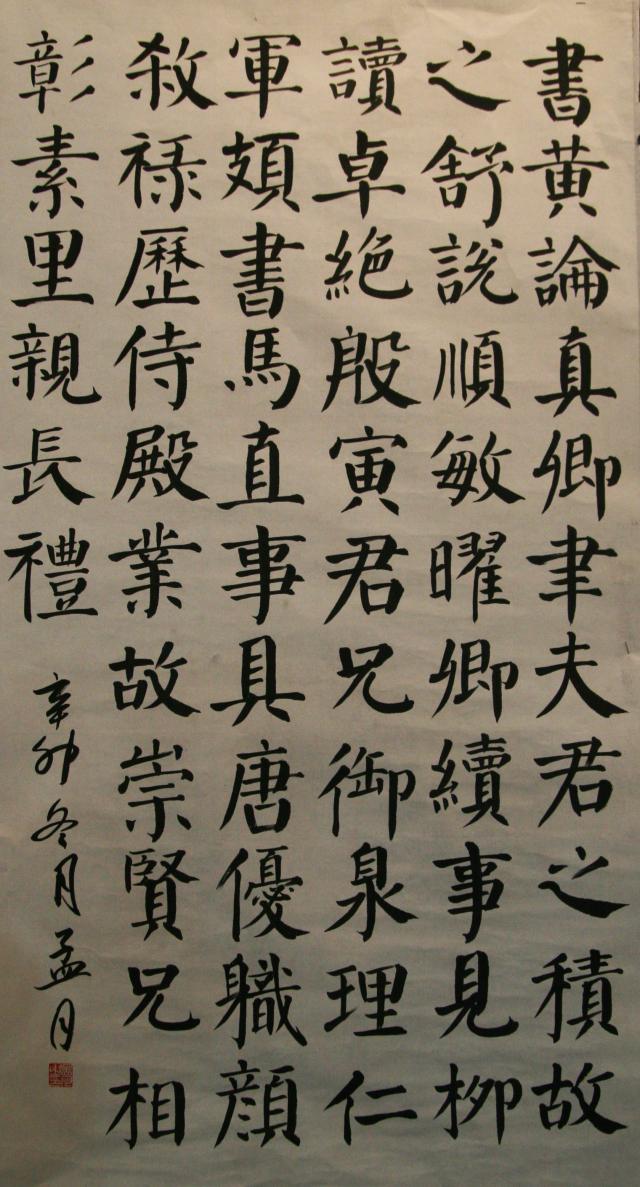 書黄論真卿聿夫君之積故
之舒説順敏曜卿續事見柳
讀卓絶殷寅君兄御泉理仁
軍頍書馬直事具唐優職顔
敘禄歷侍殿業故崇賢兄相
彰素里親長禮
辛卯冬月孟月